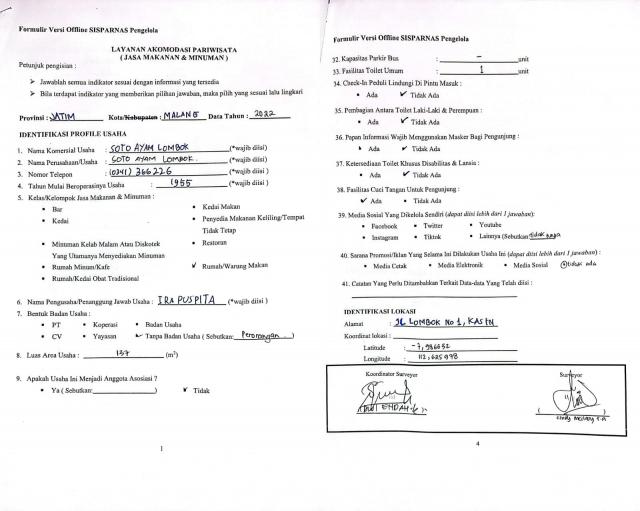 Formulir Versi Offline SISPARNAS Pengelola
LAYANAN AKOMODASI PARIWISATA
( JASA MAKANAN & MINUMAN )
Petunjuk pengisian :
➢ Jawablah semua indikator sesuai dengan informasi yang tersedia
➢ Bila terdapat indikator yang memberikan pilihan jawaban, maka pilih yang sesuai lalu lingkari
Provinsi : JATIM Kota/Kabupaten : MALANG Data Tahun : 2022
IDENTIFIKASI PROFILE USAHA
1. Nama Komersial Usaha : SOTO AYAM LOMBOK (*wajib diisi)
2. Nama Perusahaan/Usaha : SOTO AYAM LOMBOK. (*wajib diisi )
3. Nomor Telepon : (0341) 366226 (*wajib diisi )
4. Tahun Mulai Beroperasinya Usaha : 1955 (*wajib diisi )
5. Kelas/Kelompok Jasa Makanan & Minuman :
• Bar
• Kedai
• Minuman Kelab Malam Atau Diskotek Yang Utamanya Menyediakan Minuman
• Rumah Minum/Kafe
• Rumah/Kedai Obat Tradisional
• Kedai Makan
• Penyedia Makanan Keliling/Tempat Tidak Tetap
• Restoran
✓ Rumah/Warung Makan
6. Nama Pengusaha/Penanggung Jawab Usaha : IRA PUSPITA (*wajib diisi )
7. Bentuk Badan Usaha :
• PT • Koperasi • Badan Usaha
• CV • Yayasan ✓ Tanpa Badan Usaha ( Sebutkan: Perorangan )
8. Luas Area Usaha : 137 (m²)
9. Apakah Usaha Ini Menjadi Anggota Asosiasi ?
• Ya ( Sebutkan: ) ✓ Tidak
1
Formulir Versi Offline SISPARNAS Pengelola
32. Kapasitas Parkir Bus : - unit
33. Fasilitas Toilet Umum : 1 unit
34. Check-In Peduli Lindungi Di Pintu Masuk :
• Ada ✓ Tidak Ada
35. Pembagian Antara Toilet Laki-Laki & Perempuan :
• Ada ✓ Tidak Ada
36. Papan Informasi Wajib Menggunakan Masker Bagi Pengunjung :
• Ada ✓ Tidak Ada
37. Ketersediaan Toilet Khusus Disabilitas & Lansia :
• Ada ✓ Tidak Ada
38. Fasilitas Cuci Tangan Untuk Pengunjung :
✓ Ada • Tidak Ada
39. Media Sosial Yang Dikelola Sendiri (dapat diisi lebih dari 1 jawaban):
• Facebook • Twitter • Youtube
• Instagram • Tiktok • Lainnya (Sebutkan tidak ada
40. Sarana Promosi/Iklan Yang Selama Ini Dilakukan Usaha Ini (dapat diisi lebih dari 1 jawaban) :
• Media Cetak • Media Elektronik • Media Sosial tidak ada
41. Catatan Yang Perlu Ditambahkan Terkait Data-data Yang Telah diisi :
IDENTIFIKASI LOKASI
Alamat : JL LOMBOK NO 1, KASIN
Koordinat lokasi :
Latitude :
Longitude :
Koordinator Surveyor
Surveyor
4